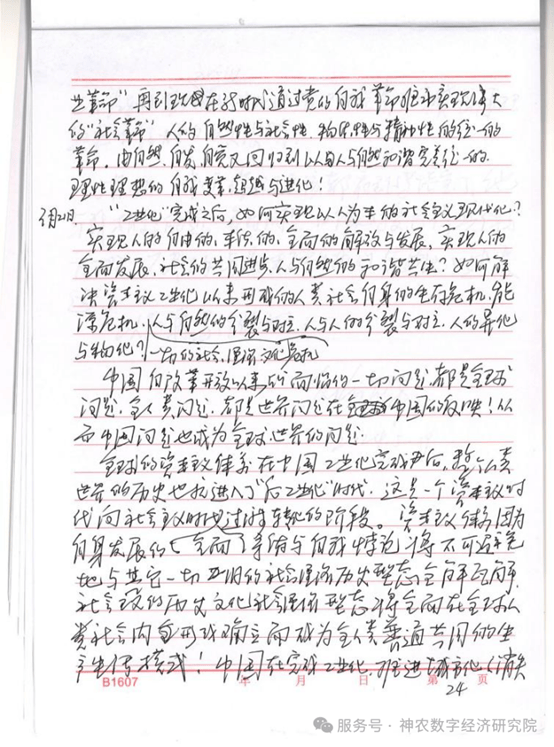 业革命"再到现在新时代通过党的自我革命推动实现伟大
的"社会革命"人的自然性与社会性、物质性与精神性的统一的
革命。由自然、自发、自觉又回归到以人与自然和谐完美统一的
理性理想的自我变革、超越与进化!
月21日、"工业化"完成之后,如何实现以人为本的社会主义现代化?
实现人的自由的、整体的、全面的解放与发展,实现人的
全面发展、社会的共同进步、人与自然的和谐共生?如何解
决资本主义工业化以来形成的人类社会自身的生存危机、能
源危机、人与自然的分裂与对立、人与人的分裂与对立、人的异化
与物化?一切的社会、经济文化危机
中国自改革开放以来所面临的一切问题,都是全球
问题、全人类问题,都是世界问题在中国的反映!从
而中国问题也成为全球世界的问题.
全球的资本主义体系在中国工业化完成之后,整个人类
世界的历史也就进入了"后工业化"时代.这是一个资本主义时
代向社会主义时代过渡转化的阶段。资本主义体系因为
自身发展的全面了 与自我悖论将不可避免
地与其它一切旧的社会经济历史型态全解瓦解.
社会主义的历史文化社会经济型态将全面在全球人
类社会内部形成确立而成为全人类普遍共同的生
产生活模式!中国在完成工业化、推进城市化(消失
B1607 年 月 日 第 24 页
服务号 · 神农数字经济研究院